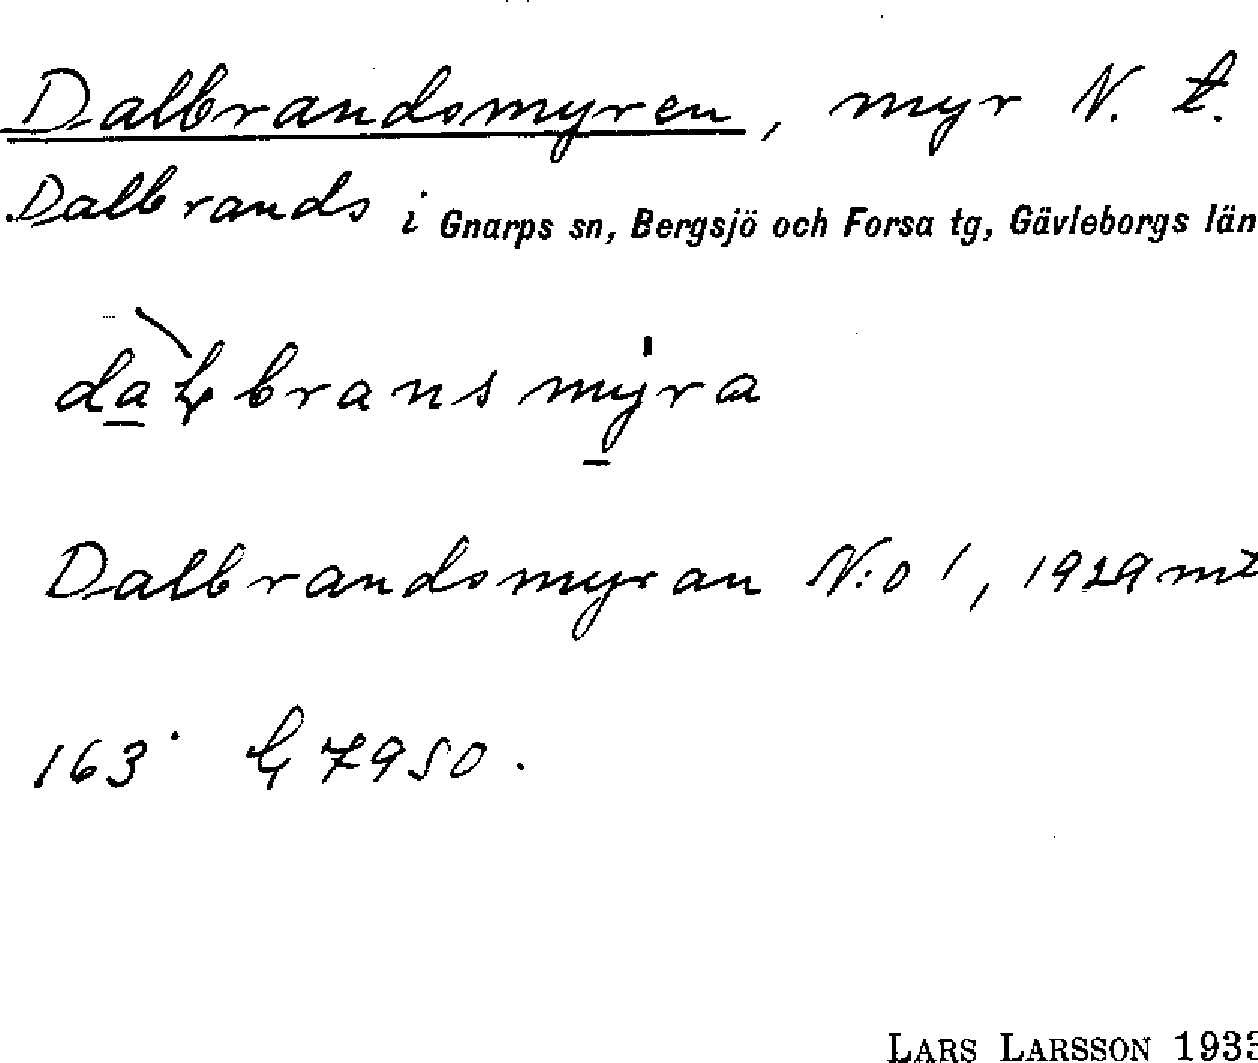 Dalbrandsmyren, myr N. t.
Dalbrands i Gnarps sn, Bergsjö och Forsa tg, Gävleborgs län
Dalbrandsmyran N:o 1, 1929
163 7950.
LARS LARSSON 1933